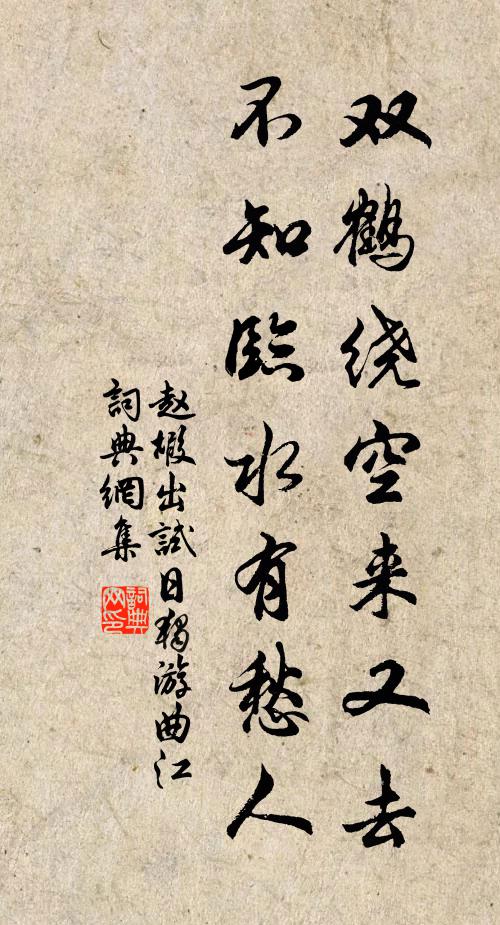 双鹤绕空来又去
不知臨水有愁人
赵嘏出試日独游曲江
詞典網集
詞典网印